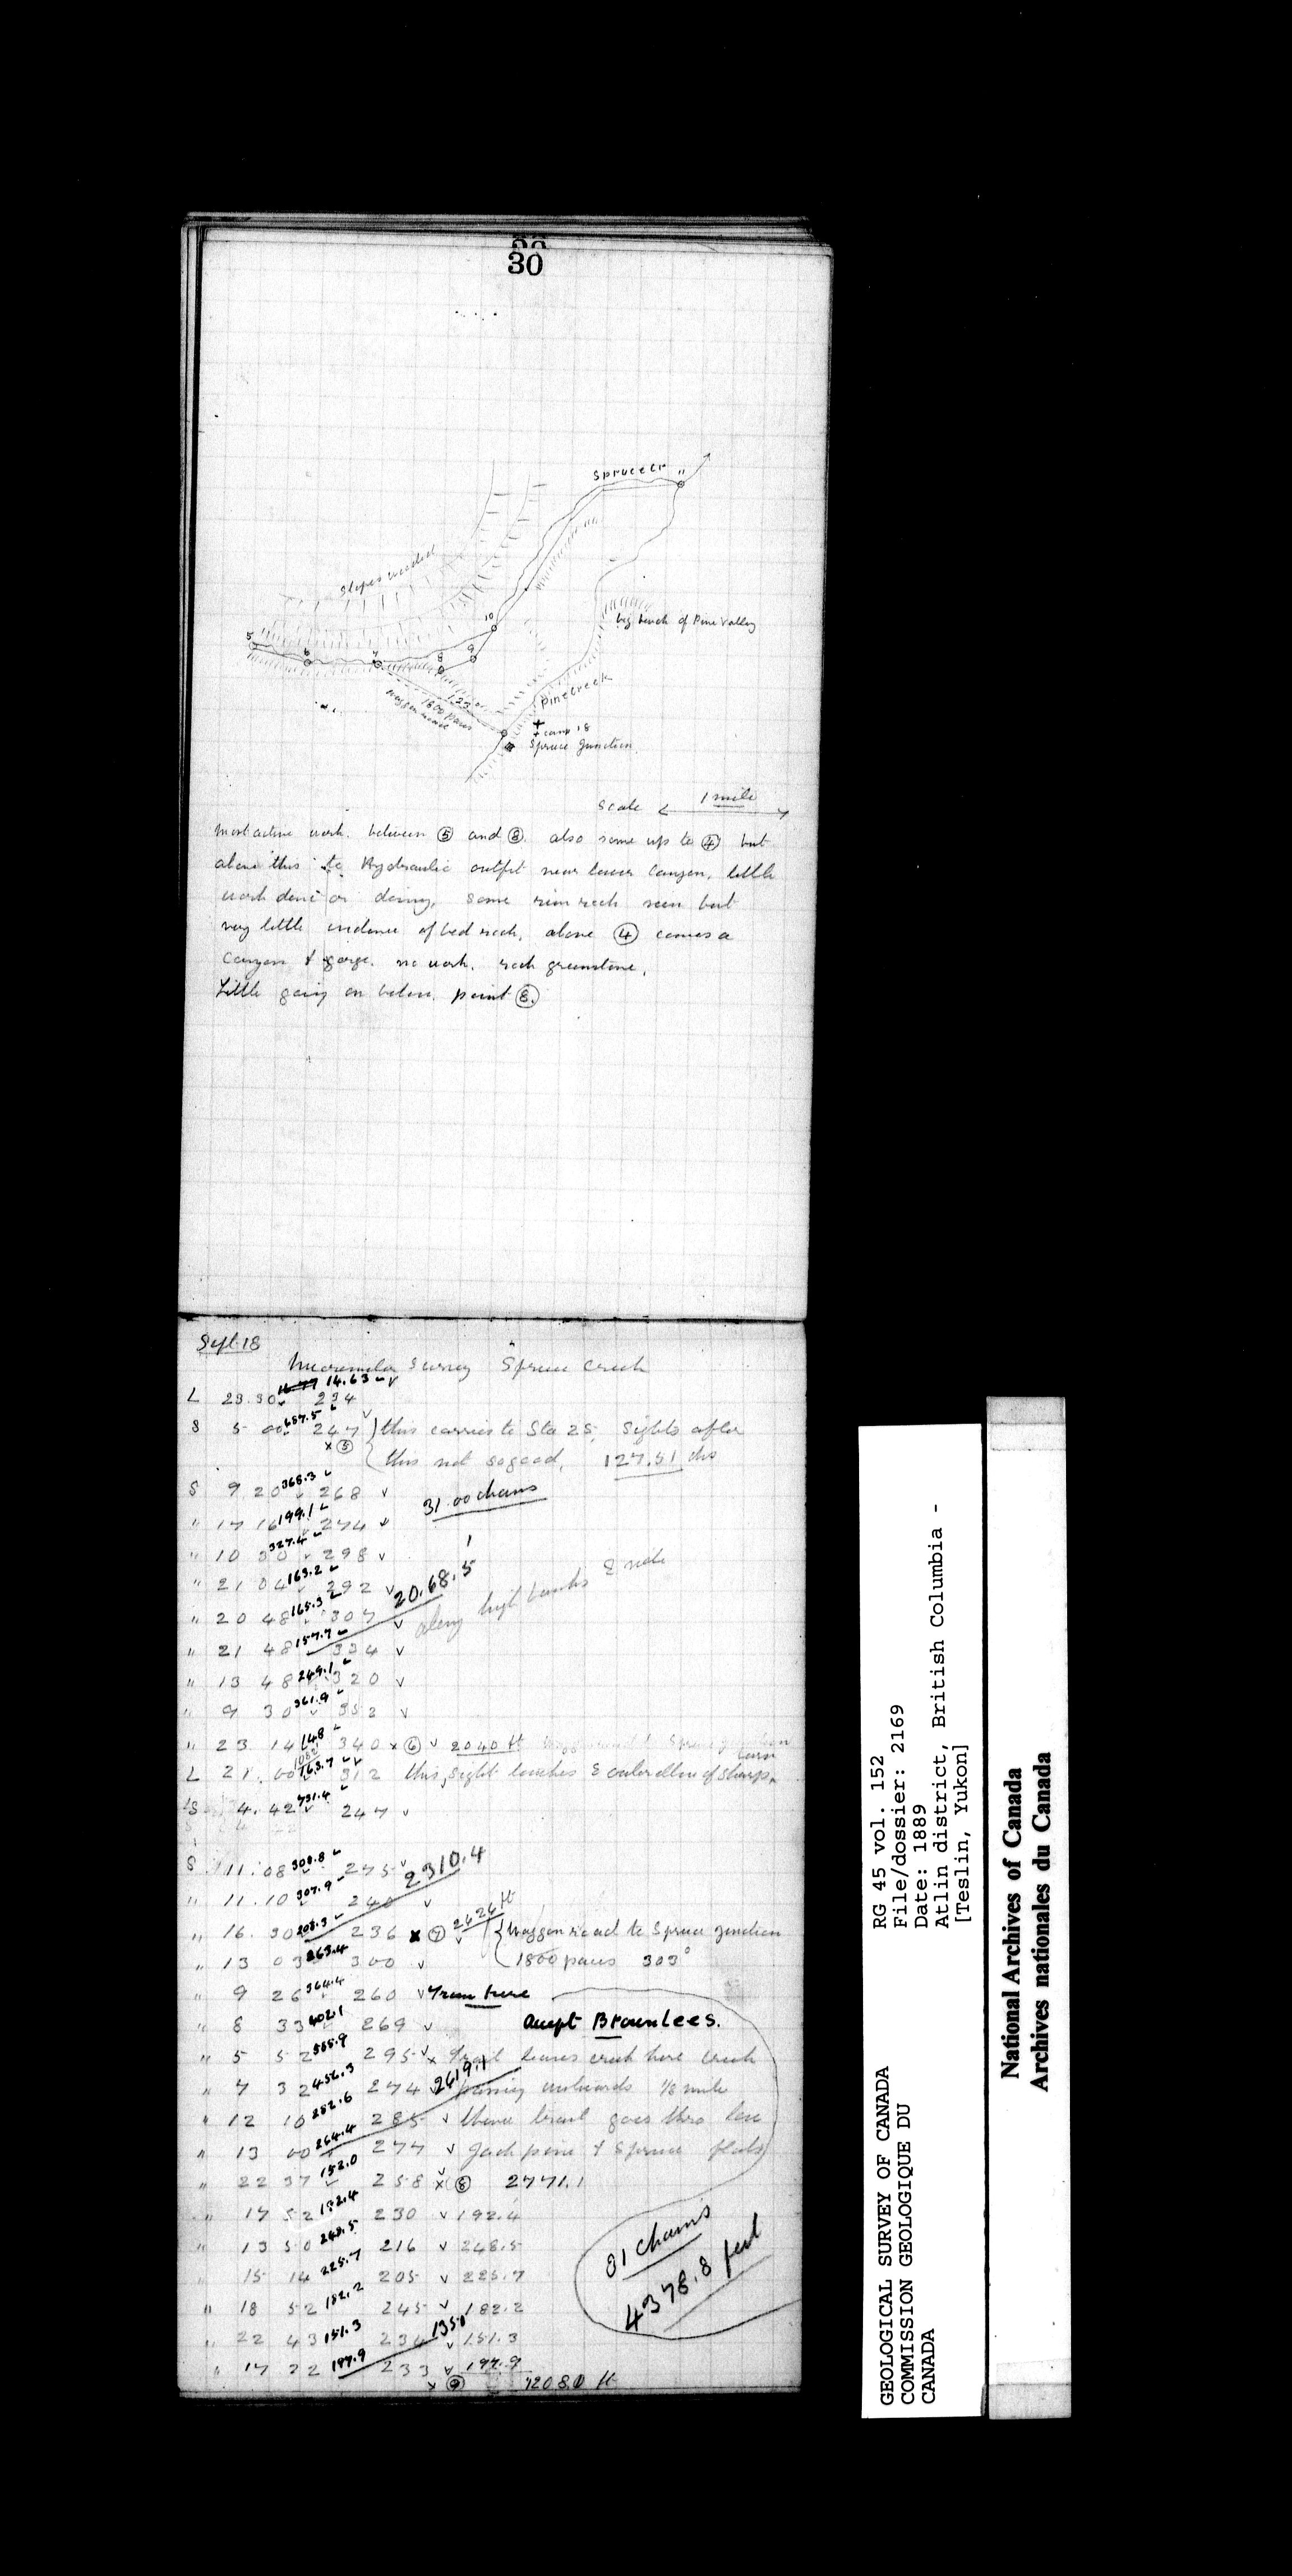 30
Spruce Cr 11
Slopes wooded
10
big bench of Pine Valley
5
6
7
8
9
Pine Creek
1800 paces
waggon road
+ camp 18
Spruce Junction
Scale 1 mile
Most active work between ⑤ and ⑧ also some up to ④ but
above this to Hydraulic outfit near lower Canyon, little
work done or doing, some rim rock seen but
very little evidence of bed rock, above ④ comes a
Canyon & gorge. no work. rock greenstone.
Little going on below point ⑧.
Sept 18
Micrometer Survey Spruce Creek
L 23.30 14.63 234
S 5 00 687.5 247 this carries to Sta 25, Sights after
x ⑤ this not so good, 127.51 chs
S 9 20 368.3 268
31.00 chains
" 17 16 199.1 274
" 10 30 327.4 298
" 21 04 163.2 292
20.68.5
" 20 48 165.3 307
along high banks E side
" 21 48 157.7 334
" 13 48 249.1 320
" 9 30 361.9 352
" 23 14 148 340 x ⑥ 2040 ft
L 21.00 163.7 312 this sight touches E outer elbow of sharp turn
S 4.42 731.4 247
S 11.08 308.8 275
2310.4
" 11.10 307.9 240
" 16.30 208.3 236 x ⑦ 2424 ft Waggon road to Spruce Junction
" 13 03 263.4 300 1800 paces 303°
" 9 26 364.4 260 From here
" 8 33 402.1 269 Accept Brownlees.
" 5 52 585.9 295 x Trail leaves creek here creek
" 7 32 456.3 274 2619.1 passing westwards 1/8 mile
" 12 10 282.6 285 thence trail goes thro low
" 13 00 264.4 277 Jack pine & Spruce flats
" 22 37 152.0 258 x ⑧ 2771.1
" 17 52 192.4 230 192.4
" 13 50 248.5 216 248.5
31 Chains
" 15 14 225.7 205 225.7
4378.8 feet
" 18 52 182.2 245 182.2
" 22 43 151.3 234 151.3
" 17 22 197.9 233 197.9
x ⑨ 1208.0 ft
RG 45 vol. 152
File/dossier: 2169
Date: 1889
Atlin district, British Columbia -
[Teslin, Yukon]
GEOLOGICAL SURVEY OF CANADA
COMMISSION GEOLOGIQUE DU
CANADA
National Archives of Canada
Archives nationales du Canada